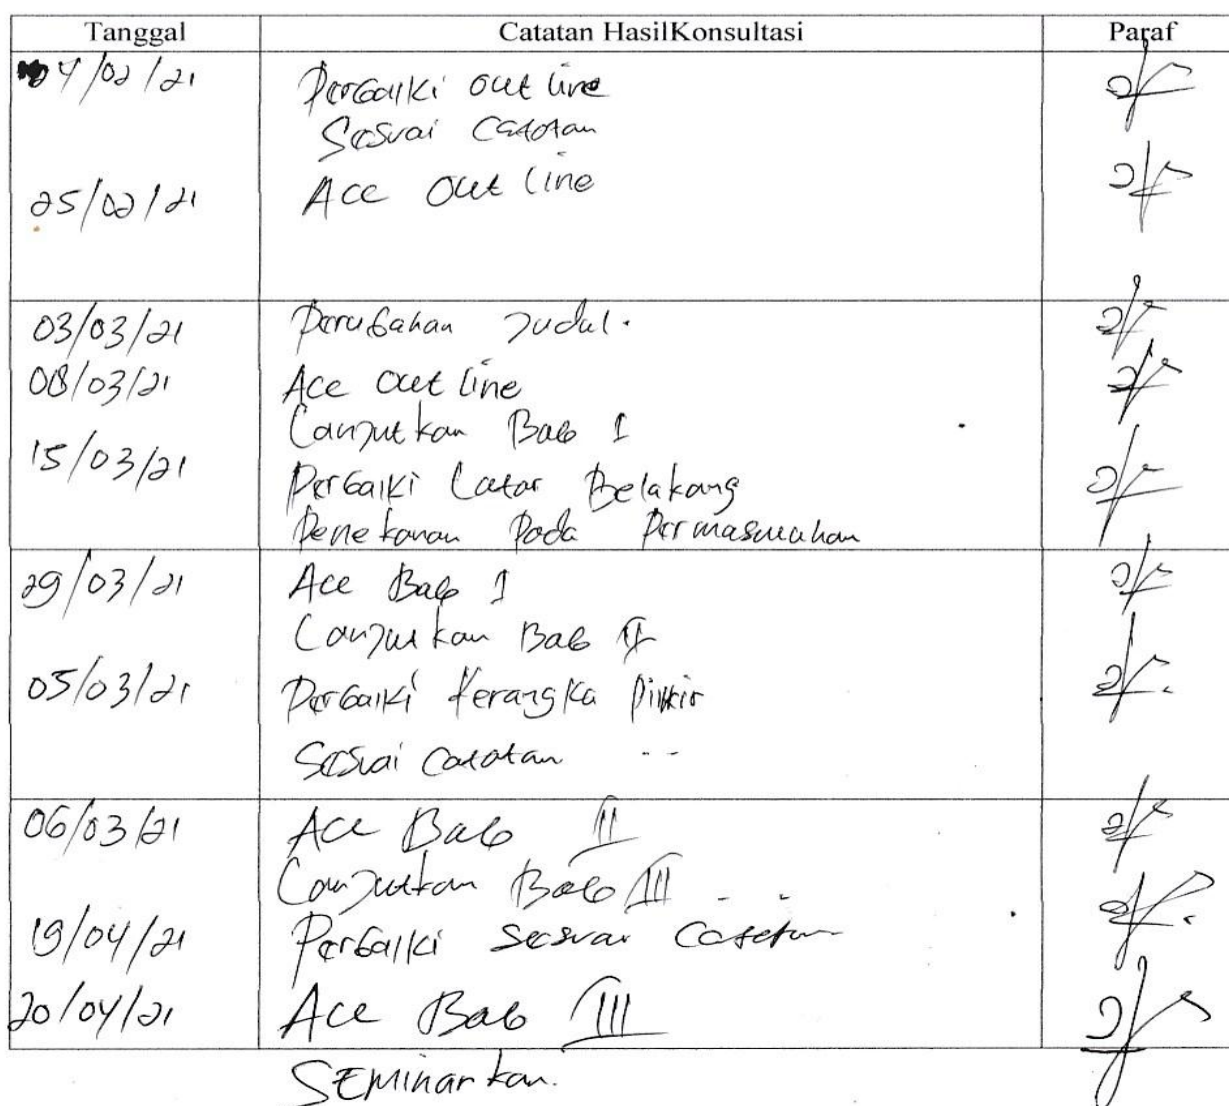 Tanggal Catatan HasilKonsultasi Paraf
04/02/21 Perbaiki outline
Sesuai Catatan
25/02/21 Acc outline
03/03/21 Perubahan Judul.
08/03/21 Acc outline
Lanjutkan Bab I
15/03/21 Perbaiki Latar Belakang
Penekanan Pada Permasalahan
29/03/21 Acc Bab I
Lanjutkan Bab II
05/03/21 Perbaiki Kerangka Pikir
Sesuai Catatan
06/03/21 Acc Bab II
Lanjutkan Bab III
19/04/21 Perbaiki Sesuai Catatan
20/04/21 Acc Bab III
Seminarkan.